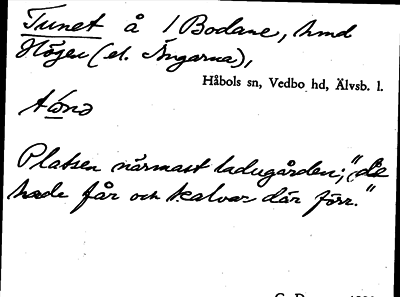 Tunet å 1 Bodane, hmd
Höjen (el. Ängarna),
Håbols sn, Vedbo hd, Älvsb. l.
Platsen närmast ladugården; "då
hade får och kalvar där förr."